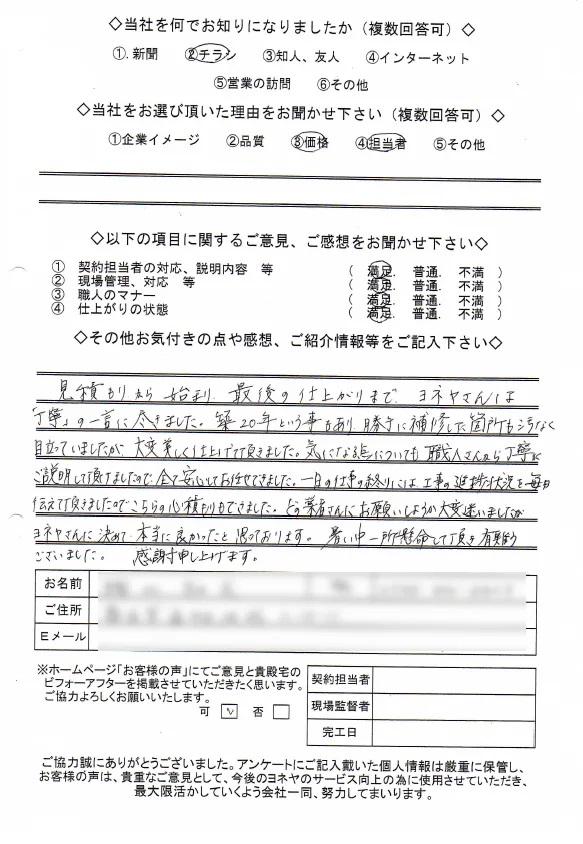 ◇当社を何でお知りになりましたか（複数回答可）◇
①.新聞 ②チラシ ③知人、友人 ④インターネット
⑤営業の訪問 ⑥その他
◇当社をお選び頂いた理由をお聞かせ下さい（複数回答可）◇
①企業イメージ ②品質 ③価格 ④担当者 ⑤その他
◇以下の項目に関するご意見、ご感想をお聞かせ下さい◇
① 契約担当者の対応、説明内容 等 （ 満足. 普通. 不満 ）
② 現場管理、対応 等 （ 満足. 普通. 不満 ）
③ 職人のマナー （ 満足. 普通. 不満 ）
④ 仕上がりの状態 （ 満足. 普通. 不満 ）
◇その他お気付きの点や感想、ご紹介情報等をご記入下さい◇
見積もりから始まり、最後の仕上がりまで、ヨネヤさんは
"丁寧"の一言に尽きました。築20年という事もあり、勝手に補修した箇所も
目立っていましたが、大変美しく仕上げて頂きました。気になる点についても、職人さんから丁寧に
ご説明して頂けましたので、全て安心してお任せできました。一日の仕事の終りには、工事の進捗状況を毎日
伝えて頂きましたのでこちらの心積もりもできました。どの業者さんにお願いしようか大変迷いましたが
ヨネヤさんに決めて、本当に良かったと思っております。暑い中一所懸命して頂き有難う
ございました。 感謝申し上げます。
お名前
ご住所
Eメール
※ホームページ「お客様の声」にてご意見と貴殿宅の
ビフォーアフターを掲載させていただきたく思います。
ご協力よろしくお願いいたします。
可 ☑ 否 □
契約担当者
現場監督者
完工日
ご協力誠にありがとうございました。アンケートにご記入戴いた個人情報は厳重に保管し、
お客様の声は、貴重なご意見として、今後のヨネヤのサービス向上の為に使用させていただき、
最大限活かしていくよう会社一同、努力してまいります。